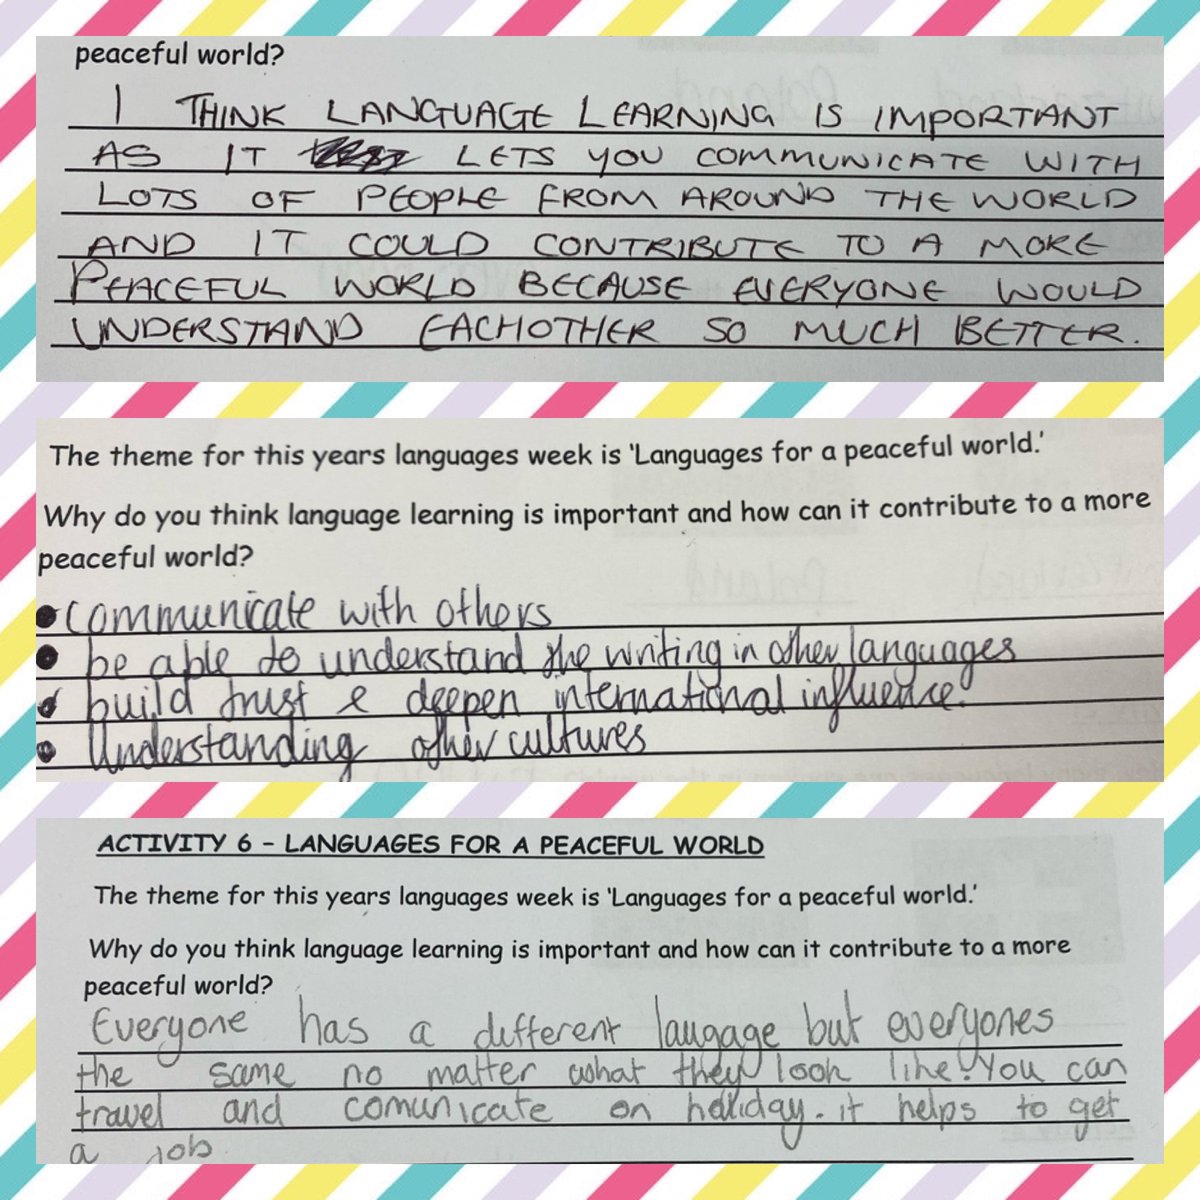 peaceful world?
I THINK LANGUAGE LEARNING IS IMPORTANT
AS IT LETS YOU COMMUNICATE WITH
LOTS OF PEOPLE FROM AROUND THE WORLD
AND IT COULD CONTRIBUTE TO A MORE
PEACEFUL WORLD BECAUSE EVERYONE WOULD
UNDERSTAND EACHOTHER SO MUCH BETTER.
The theme for this years languages week is 'Languages for a peaceful world.'
Why do you think language learning is important and how can it contribute to a more
peaceful world?
• communicate with others
• be able to understand the writing in other languages
• build trust & deepen international influence.
• Understanding other cultures
ACTIVITY 6 - LANGUAGES FOR A PEACEFUL WORLD
The theme for this years languages week is 'Languages for a peaceful world.'
Why do you think language learning is important and how can it contribute to a more
peaceful world?
Everyone has a different laugage but everyones
the same no matter what they look like. You can
travel and comunicate on holiday. it helps to get
a job